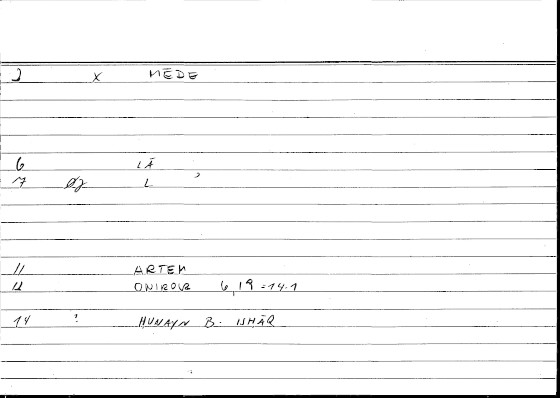 2 x NĒDE
6 LĀ
7 Øz L
11 ARTEM
12 ONIROCR 6,19=14.1
14 ? HUNAYN B. ISHĀQ